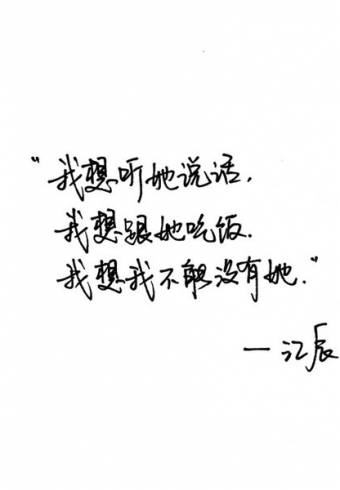 “我想听她说话.
我想跟她吃饭.
我想我不能没有她.”
—江辰